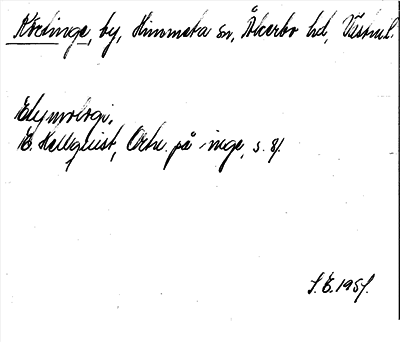 Kvedinge, by, Himmeta sn, Åkerbo hd, Västml.
Etymologi.
E. Hellquist, Ortn. på -inge, s. 81.
S.E. 1951.